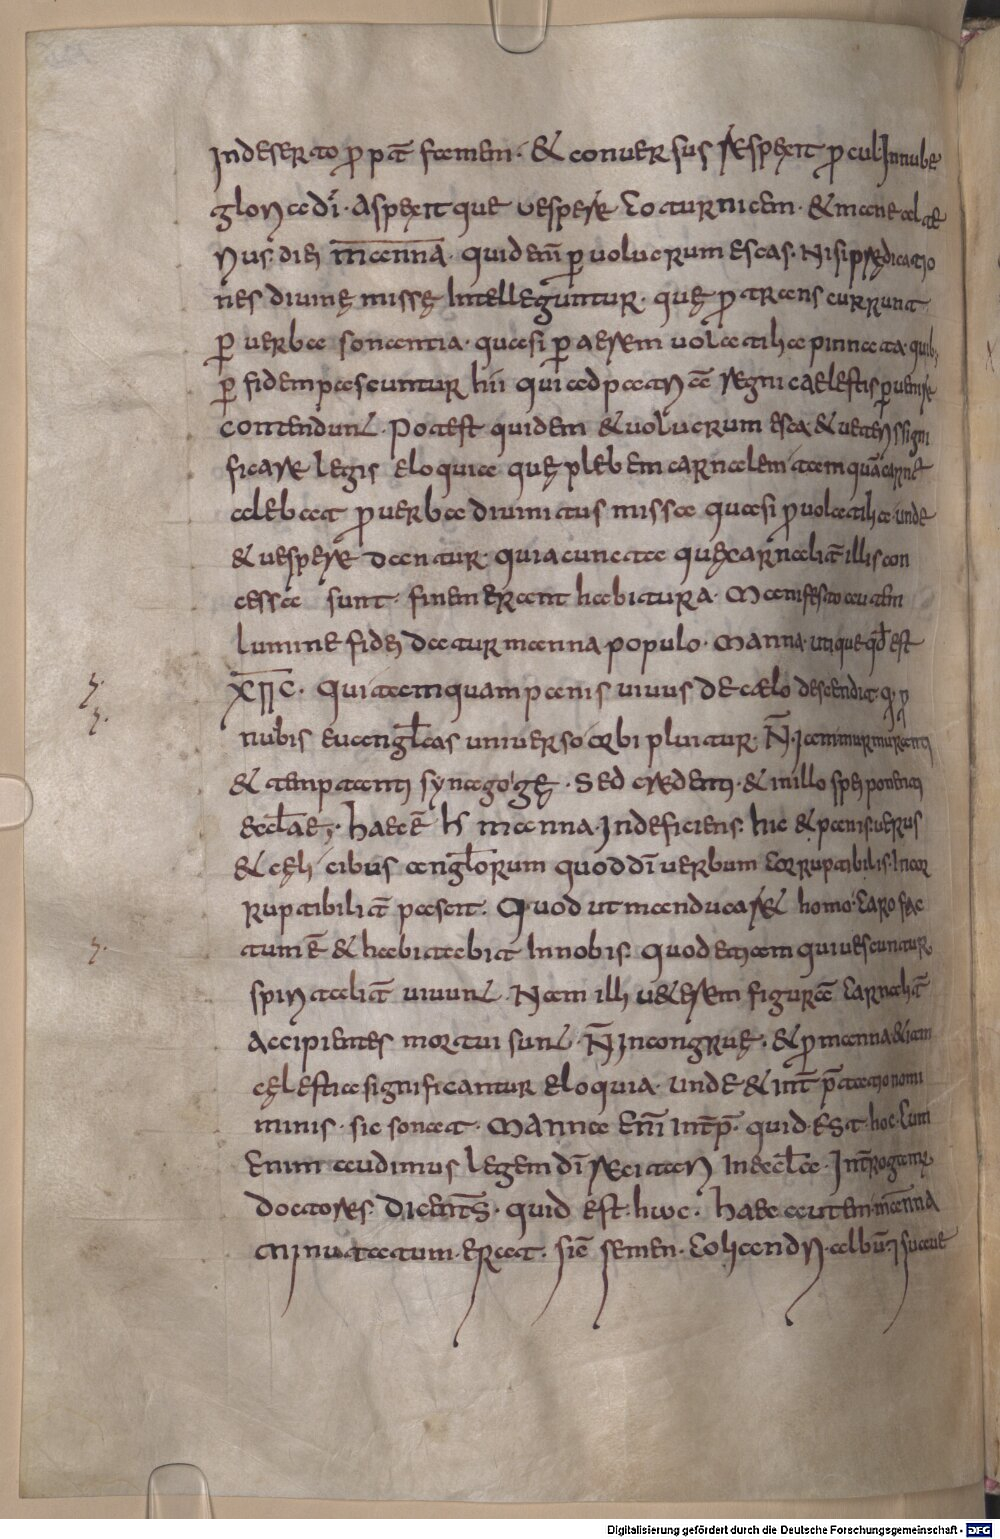 In deserto p̄pt̄ famem. & conuersus respexit procul In nube
gloria dī. Aspexitque uespere Coturnicem. & mane al te
rius diei manna. quid enī ꝑ uolucrum escas. Nisi prędicatio
nes diuinę missę Intelleguntur. quę ꝓ trans currunt
ꝑ uerba sonantia. quasi ꝑ aerem uolatilia pinnata. quib;
ꝑ fidem pascuntur hii qui ad patriā regni caelestis ꝑuenire
contendunt. Potest quidem & uolucrum esca & ueteris signi
ficare legis eloquia quę plebem carnalem tamquā carne
alebat ꝑ uerba diuinitus missa quasi ꝑ uolatilia. unde
& uespere dantur. quia cuncta quę carnalit̄ illis con
cessa sunt. finem erant habitura. Manifesto autem
lumine fidei datur manna populo. Manna. utique qđ est
XP̄C. Qui tamquam panis uiuus de cælo descendit. qui ꝑ
nubis euangłcas uniuerso orbi pluitur. N̄. Iam murmuranti
& temptanti synagogę. Sed credenti. & in illo spei ponenti
ecclae;. haec ē h manna. Indeficiens. hic & panis. uerus
& cęli cibus anglorum quod dī uerbum Corruptibilis. Incor
ruptibilit̄ pascit. Quod ut manducaret homo. Caro fac
tum ē & habitabit In nobis. Quod etiam qui uescuntur
spiritalit̄ uiuunt. Nam illi ueterem figurā Carnalit̄
Accipientes mortui sunt. N̄ Incongruę. & ꝑ manna etiam
cęlestia significantur eloquia. unde & int̄ p̄tatio nomi
minis. sic sonat. Manna enī Int̄p̄. quid. est. hoc. Cum
enim audimus legem dī recitari In eccla. Int̄rogamus
doctores Dicent̄s. quid est. hoc. haec autem manna
minutatum. erat. sic̄ semen. Coliandri. albū. & suaue